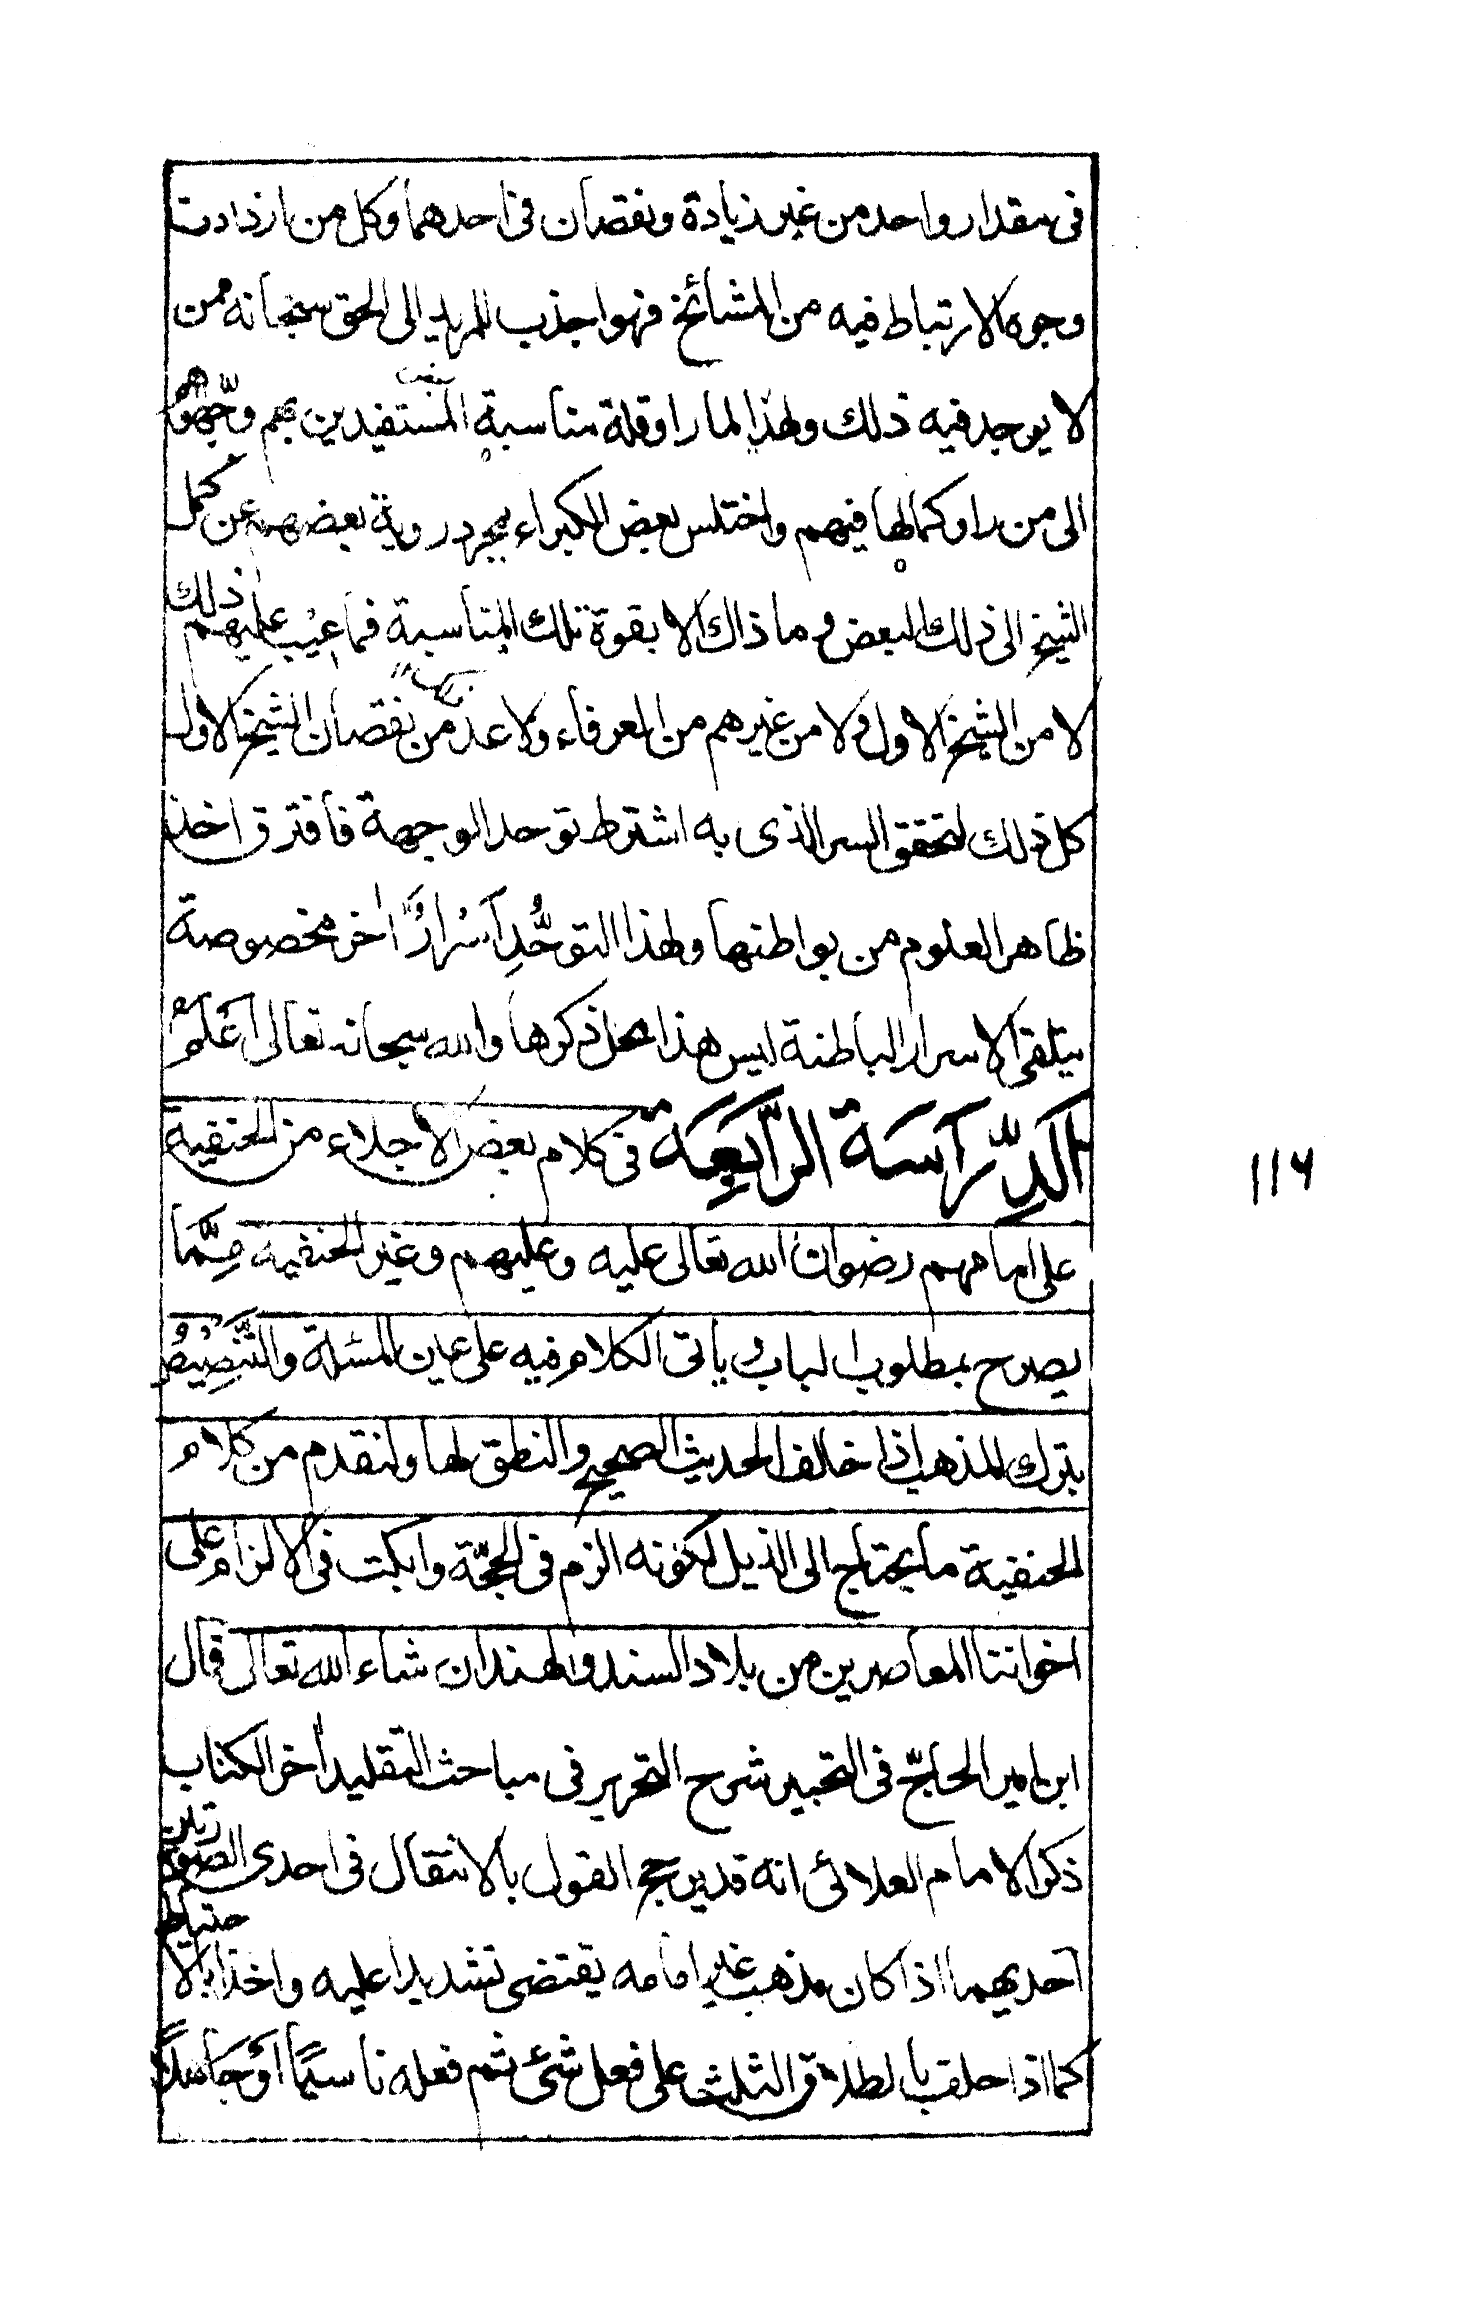 فى مقدار واحد من غير زيادة ونقصان فى احدهما وكل من ازدادت
وجوه الارتباط فيه من المشائخ فهو اجذب للمريد الى الحق سبحانه ممن
لا يوجد فيه ذلك ولهذا لما راوا قلة مناسبة المستفيدين بهم وجهوهم
الى من راو كمالها فيهم واختلس بعض الكبراء بمجرد روية بعضهم عن كمل
الشيخ الى ذلك البعض وما ذاك الا بقوة تلك المناسبة فما عيب عليهم ذلك
لا من الشيخ الاول ولا من غيرهم من العرفاء ولا عد من نقصان الشيخ الاول
كل ذلك لتحقق السر الذى به اشترط توحد الوجهة فافترق اخذ
ظاهر العلوم من بواطنها ولهذا التوحُّدِ اَسْرارٌ اخر مخصوصة
بتلقى الاسرار الباطنة ليس هذا محل ذكرها والله سبحانه تعالى اَعْلَمُ
اَلدِّرَاسَة الرَّابِعَة فى كلام بعض الاجلاء من الحنفية
على امامهم رضوان الله تعالى عليه وعليهم وغير الحنفية مِمَّا
يصرح بمطلوب الباب وياتى الكلام فيه على عين المسئلة والتَّنصِيْصُ
بترك المذهب اذا خالف الحديث الصحيح والنطق لها ولنقدم من كلام
الحنفية ما يحتاج الى الذيل لكونه الزم فى الحجّة وابكت فى الالزام على
اخواننا المعاصرين من بلاد السند والهند ان شاء الله تعالى قال
ابن امير الحاجّ فى التحبير شرح التحرير فى مباحث التقليد اٰخر الكتاب
ذكر الامام العلائى انه قد يرجح القول بالانتقال فى احدى الصورتين
احديهما اذا كان مذهب غير امامه يقتضى تشديدا عليه واخذا بالاحتياط
كما اذا حلف بالطلاق الثلث على فعل شئ ثم فعله ناسيًا اَوْ جَاهلًا
١١٦